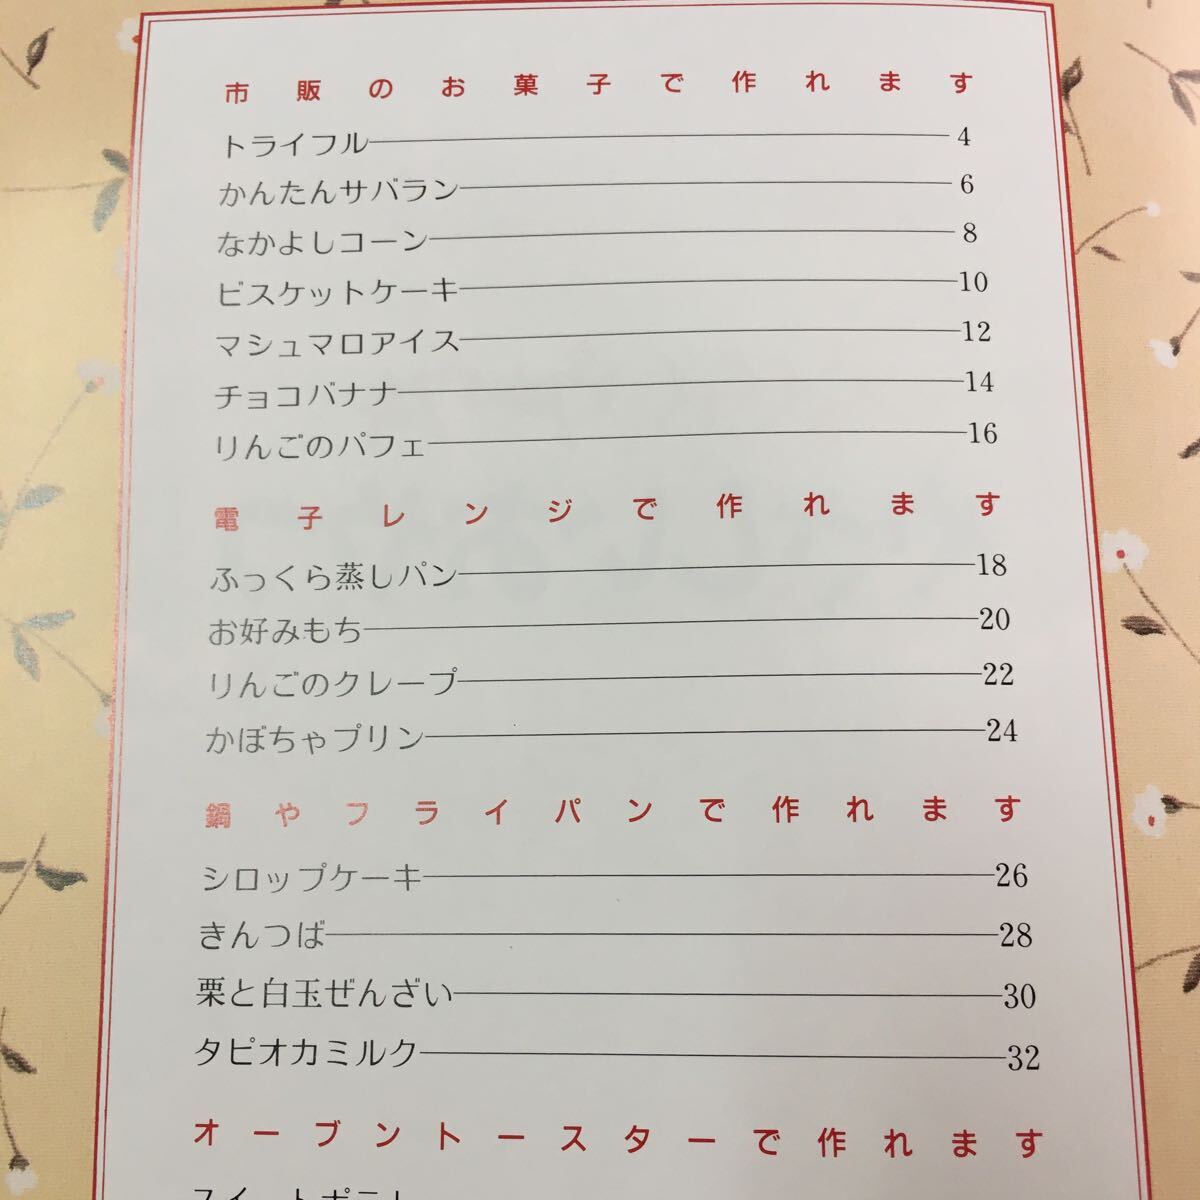 市販のお菓子で作れます
トライフル 4
かんたんサバラン 6
なかよしコーン 8
ビスケットケーキ 10
マシュマロアイス 12
チョコバナナ 14
りんごのパフェ 16
電子レンジで作れます
ふっくら蒸しパン 18
お好みもち 20
りんごのクレープ 22
かぼちゃプリン 24
鍋やフライパンで作れます
シロップケーキ 26
きんつば 28
栗と白玉ぜんざい 30
タピオカミルク 32
オーブントースターで作れます